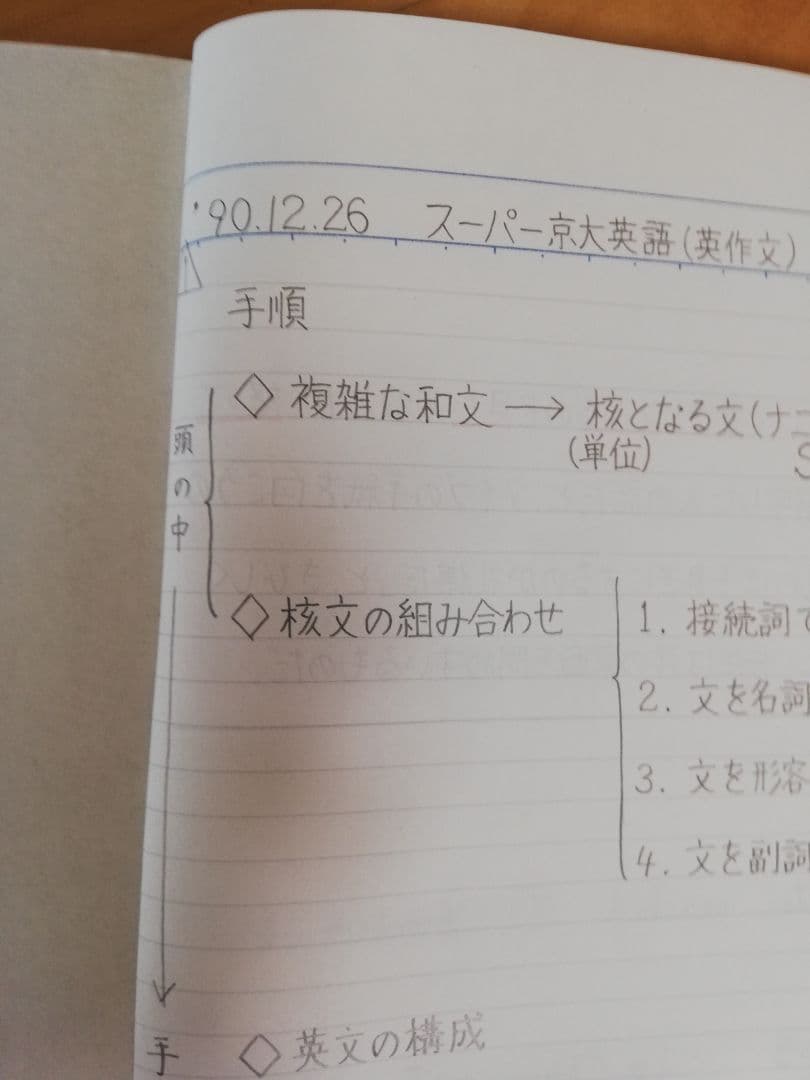 '90.12.26 スーパー京大英語(英作文)
手順
頭の中
◇ 複雑な和文 → 核となる文(ナニ
(単位)
S
◇ 核文の組み合わせ
1. 接続詞で
2. 文を名詞
3. 文を形容
4. 文を副詞
手
◇ 英文の構成